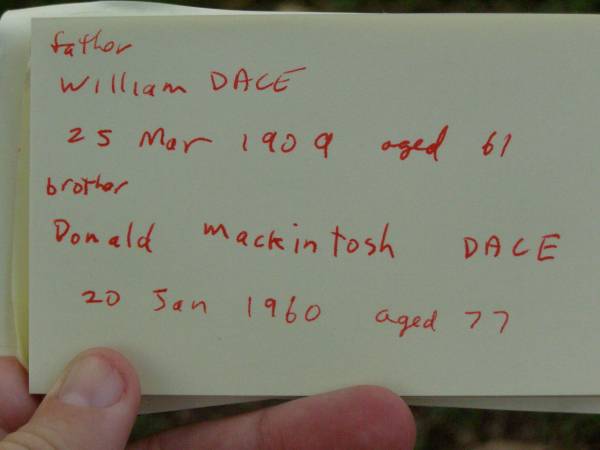 father
William DACE
25 Mar 1909 aged 61
brother
Donald Mackintosh DACE
20 Jan 1960 aged 77